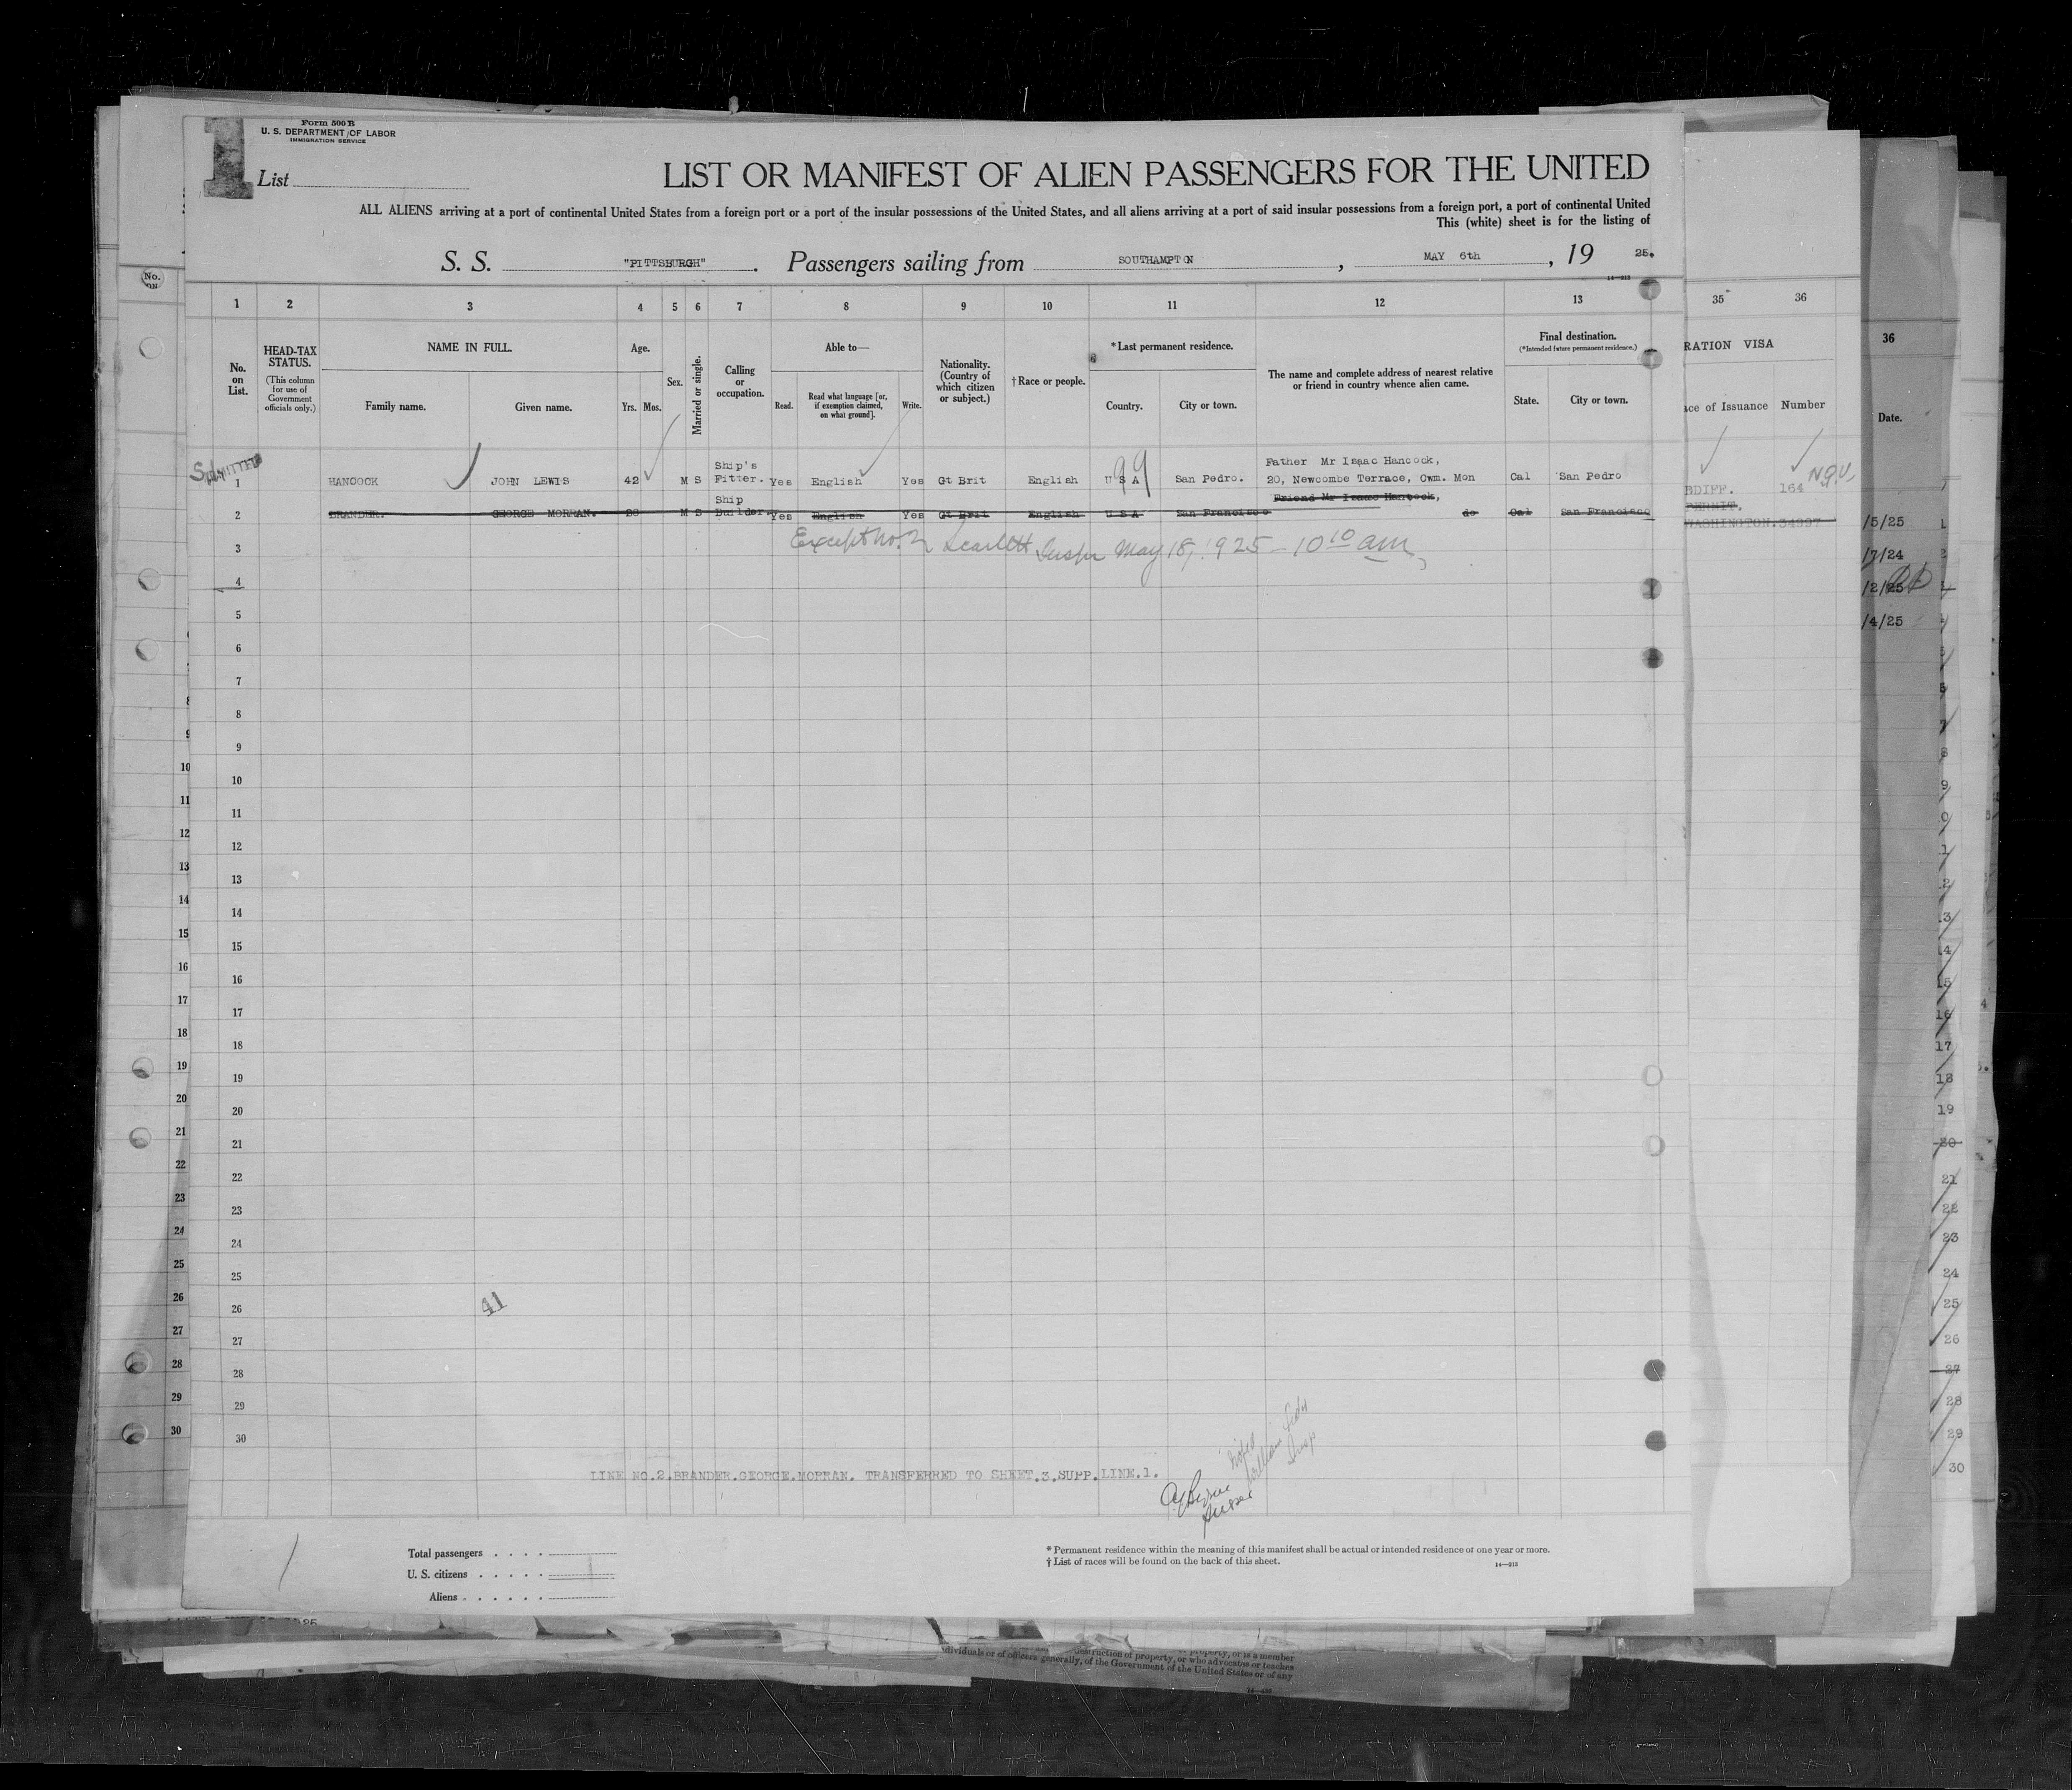 Form 500 B
U. S. DEPARTMENT OF LABOR
IMMIGRATION SERVICE
1
List
LIST OR MANIFEST OF ALIEN PASSENGERS FOR THE UNITED
ALL ALIENS arriving at a port of continental United States from a foreign port or a port of the insular possessions of the United States, and all aliens arriving at a port of said insular possessions from a foreign port, a port of continental United
This (white) sheet is for the listing of
S. S. "PITTSBURGH". Passengers sailing from SOUTHAMPTON, MAY 6th, 19 25.
14-213
1 2 3 4 5 6 7 8 9 10 11 12 13 35 36
No. on List.
HEAD-TAX STATUS.
(This column for use of Government officials only.)
NAME IN FULL.
Family name. Given name.
Age.
Yrs. Mos.
Sex.
Married or single.
Calling or occupation.
Able to—
Read. Read what language [or, if exemption claimed, on what ground]. Write.
Nationality. (Country of which citizen or subject.)
†Race or people.
*Last permanent residence.
Country. City or town.
The name and complete address of nearest relative or friend in country whence alien came.
Final destination.
(*Intended future permanent residence.)
State. City or town.
RATION VISA
ace of Issuance Number
36
Date.
1 HANCOCK JOHN LEWIS 42 M S Ship's Fitter. Yes English Yes Gt Brit English U S A San Pedro. Father Mr Isaac Hancock, 20, Newcombe Terrace, Cwm. Mon Cal San Pedro
RDIFF. 164 NQV
2 BRANDER. GEORGE MORRAN. 28 M S Ship Builder. Yes English Yes Gt Brit English U S A San Francisco Friend Mr Isaac Hancock, do Cal San Francisco
PERMIT.
WASHINGTON.34397
Except No. 2 Scarlett Inspr May 18, 1925 - 10 10 am
/5/25
/7/24
/2/25
/4/25
3
4
5
6
7
8
9
10
11
12
13
14
15
16
17
18
19
20
21
22
23
24
25
26
41
27
28
29
30
LINE NO.2.BRANDER.GEORGE.MORRAN. TRANSFERRED TO SHEET.3.SUPP.LINE.1.
Total passengers
U. S. citizens 1
Aliens
* Permanent residence within the meaning of this manifest shall be actual or intended residence of one year or more.
† List of races will be found on the back of this sheet.
14-213
dividuals or of officers generally, of the Government of the United States or of any